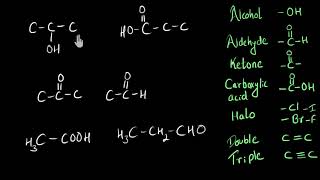 C - C - C
OH
O
HO - C - C - C
O
C - C - C
O
C - C - H
H₃C - COOH
H₃C - CH₂ - CHO
Alcohol - OH
Aldehyde - C - H
O
Ketone - C -
O
Carboxylic acid - C - OH
O
Halo - Cl - I
- Br - F
Double C = C
Triple C ≡ C